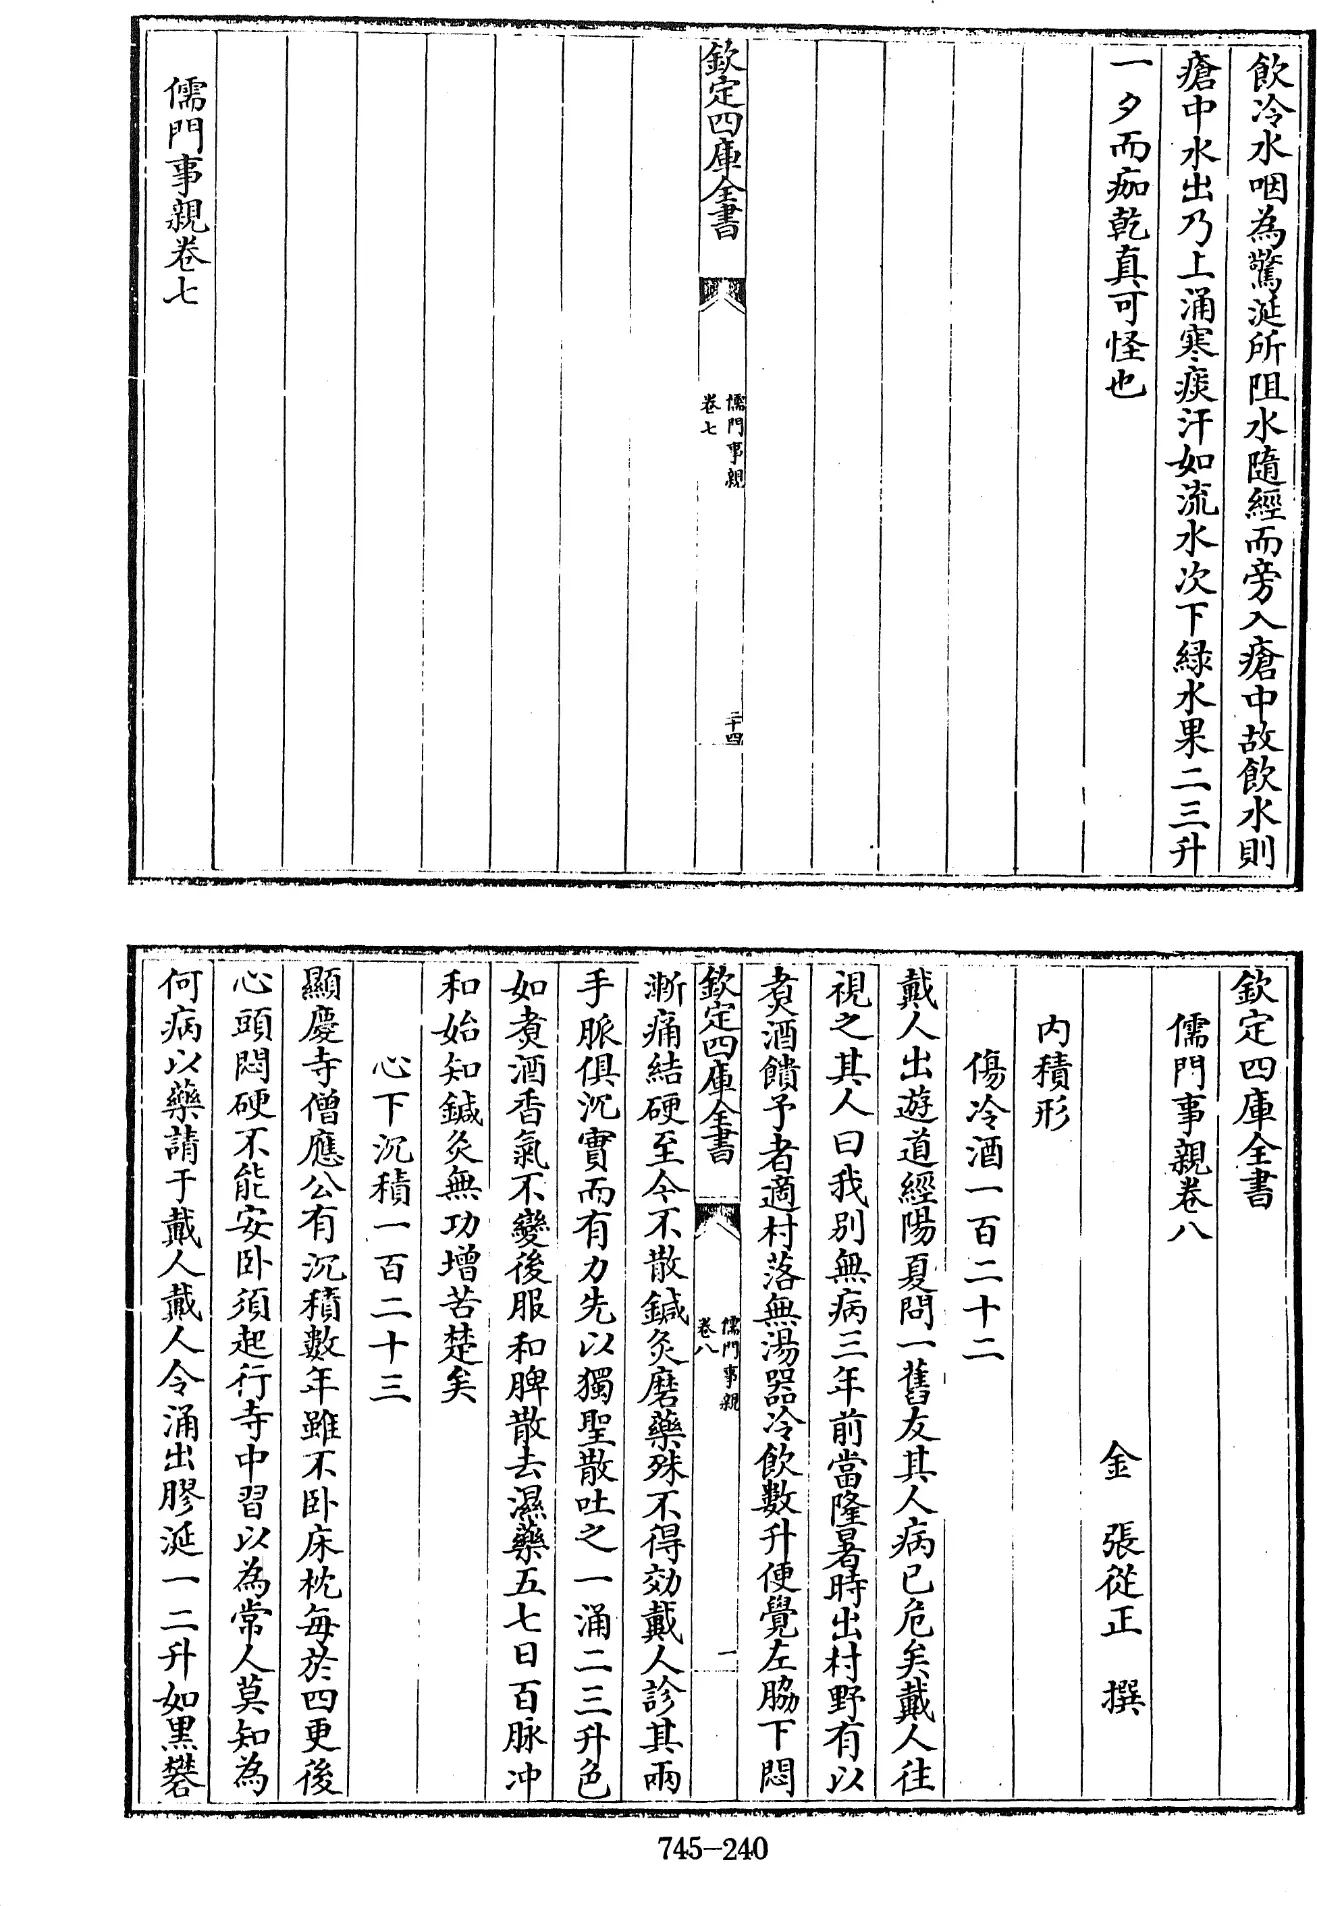 飲冷水咽為驚涎所阻水隨經而旁入瘡中故飲水則
瘡中水出乃上涌寒痰汗如流水次下緑水果二三升
一夕而痂乾真可怪也
欽定四庫全書
儒門事親
卷七
二十四
儒門事親卷七
欽定四庫全書
儒門事親卷八
金 張從正 撰
内積形
傷冷酒一百二十二
戴人出遊道經陽夏問一舊友其人病已危矣戴人往
視之其人曰我别無病三年前當隆暑時出村野有以
煑酒饋予者適村落無湯器冷飲數升便覺左脇下悶
欽定四庫全書
儒門事親
卷八
一
漸痛結硬至今不散鍼灸磨藥殊不得効戴人診其兩
手脈俱沉實而有力先以獨聖散吐之一涌二三升色
如煑酒香氣不變後服和脾散去濕藥五七日百脉冲
和始知鍼灸無功增苦楚矣
心下沉積一百二十三
顯慶寺僧應公有沉積數年雖不卧床枕每於四更後
心頭悶硬不能安卧須起行寺中習以為常人莫知為
何病以藥請于戴人戴人令涌出膠涎一二升如黒礬
745-240